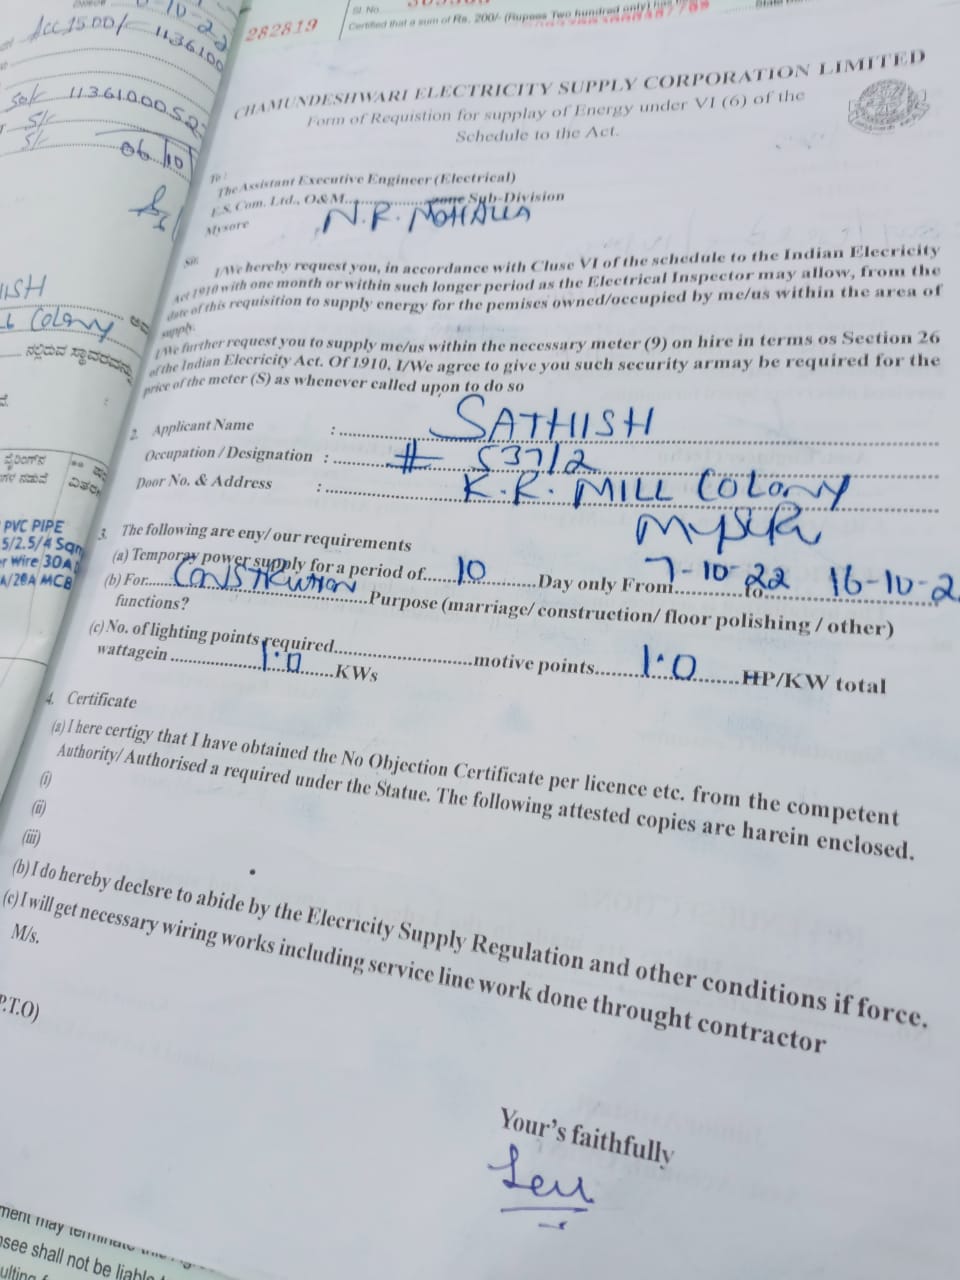 282819
Sl No.
Certified that a sum of Rs. 200/- (Rupees Two hundred only)
CHAMUNDESHWARI ELECTRICITY SUPPLY CORPORATION LIMITED
Form of Requistion for supplay of Energy under VI (6) of the
Schedule to the Act.
To :
The Assistant Executive Engineer (Electrical)
E.S. Com. Ltd., O&M.................zone Sub-Division
N.R. MOHALLA
Mysore
Sir.
I/We hereby request you, in accordance with Cluse VI of the schedule to the Indian Elecricity
Act 1910 with one month or within such longer period as the Electrical Inspector may allow, from the
date of this requisition to supply energy for the pemises owned/occupied by me/us within the area of
supply.
I/We further request you to supply me/us within the necessary meter (9) on hire in terms os Section 26
of the Indian Elecricity Act. Of 1910. I/We agree to give you such security armay be required for the
price of the meter (S) as whenever called upon to do so
2. Applicant Name : SATHISH
Occupation / Designation : # 537/2
Door No. & Address : K.R. MILL COLONY
3. The following are eny/ our requirements
(a) Temporay power supply for a period of......10............Day only From 7-10-22 to 16-10-2
(b) For...CONSTRUTION...Purpose (marriage/ construction/ floor polishing / other)
functions?
(c) No. of lighting points required..........................motive points.......1.0........HP/KW total
wattagein.............1.0......KWs
4. Certificate
(a) I here certigy that I have obtained the No Objection Certificate per licence etc. from the competent
Authority/ Authorised a required under the Statue. The following attested copies are harein enclosed.
(i)
(ii)
(iii)
(b) I do hereby declsre to abide by the Elecricity Supply Regulation and other conditions if force.
(c) I will get necessary wiring works including service line work done throught contractor
M/s.
P.T.O)
Your's faithfully
11361000
06/10
ISH
Colony
ನಲ್ಲಿರುವ ಸ್ಥಾವರವನ್ನು
PVC PIPE
5/2.5/4 Sqm
r Wire 30A
A/20A MCB
ment may
see shall not be liable